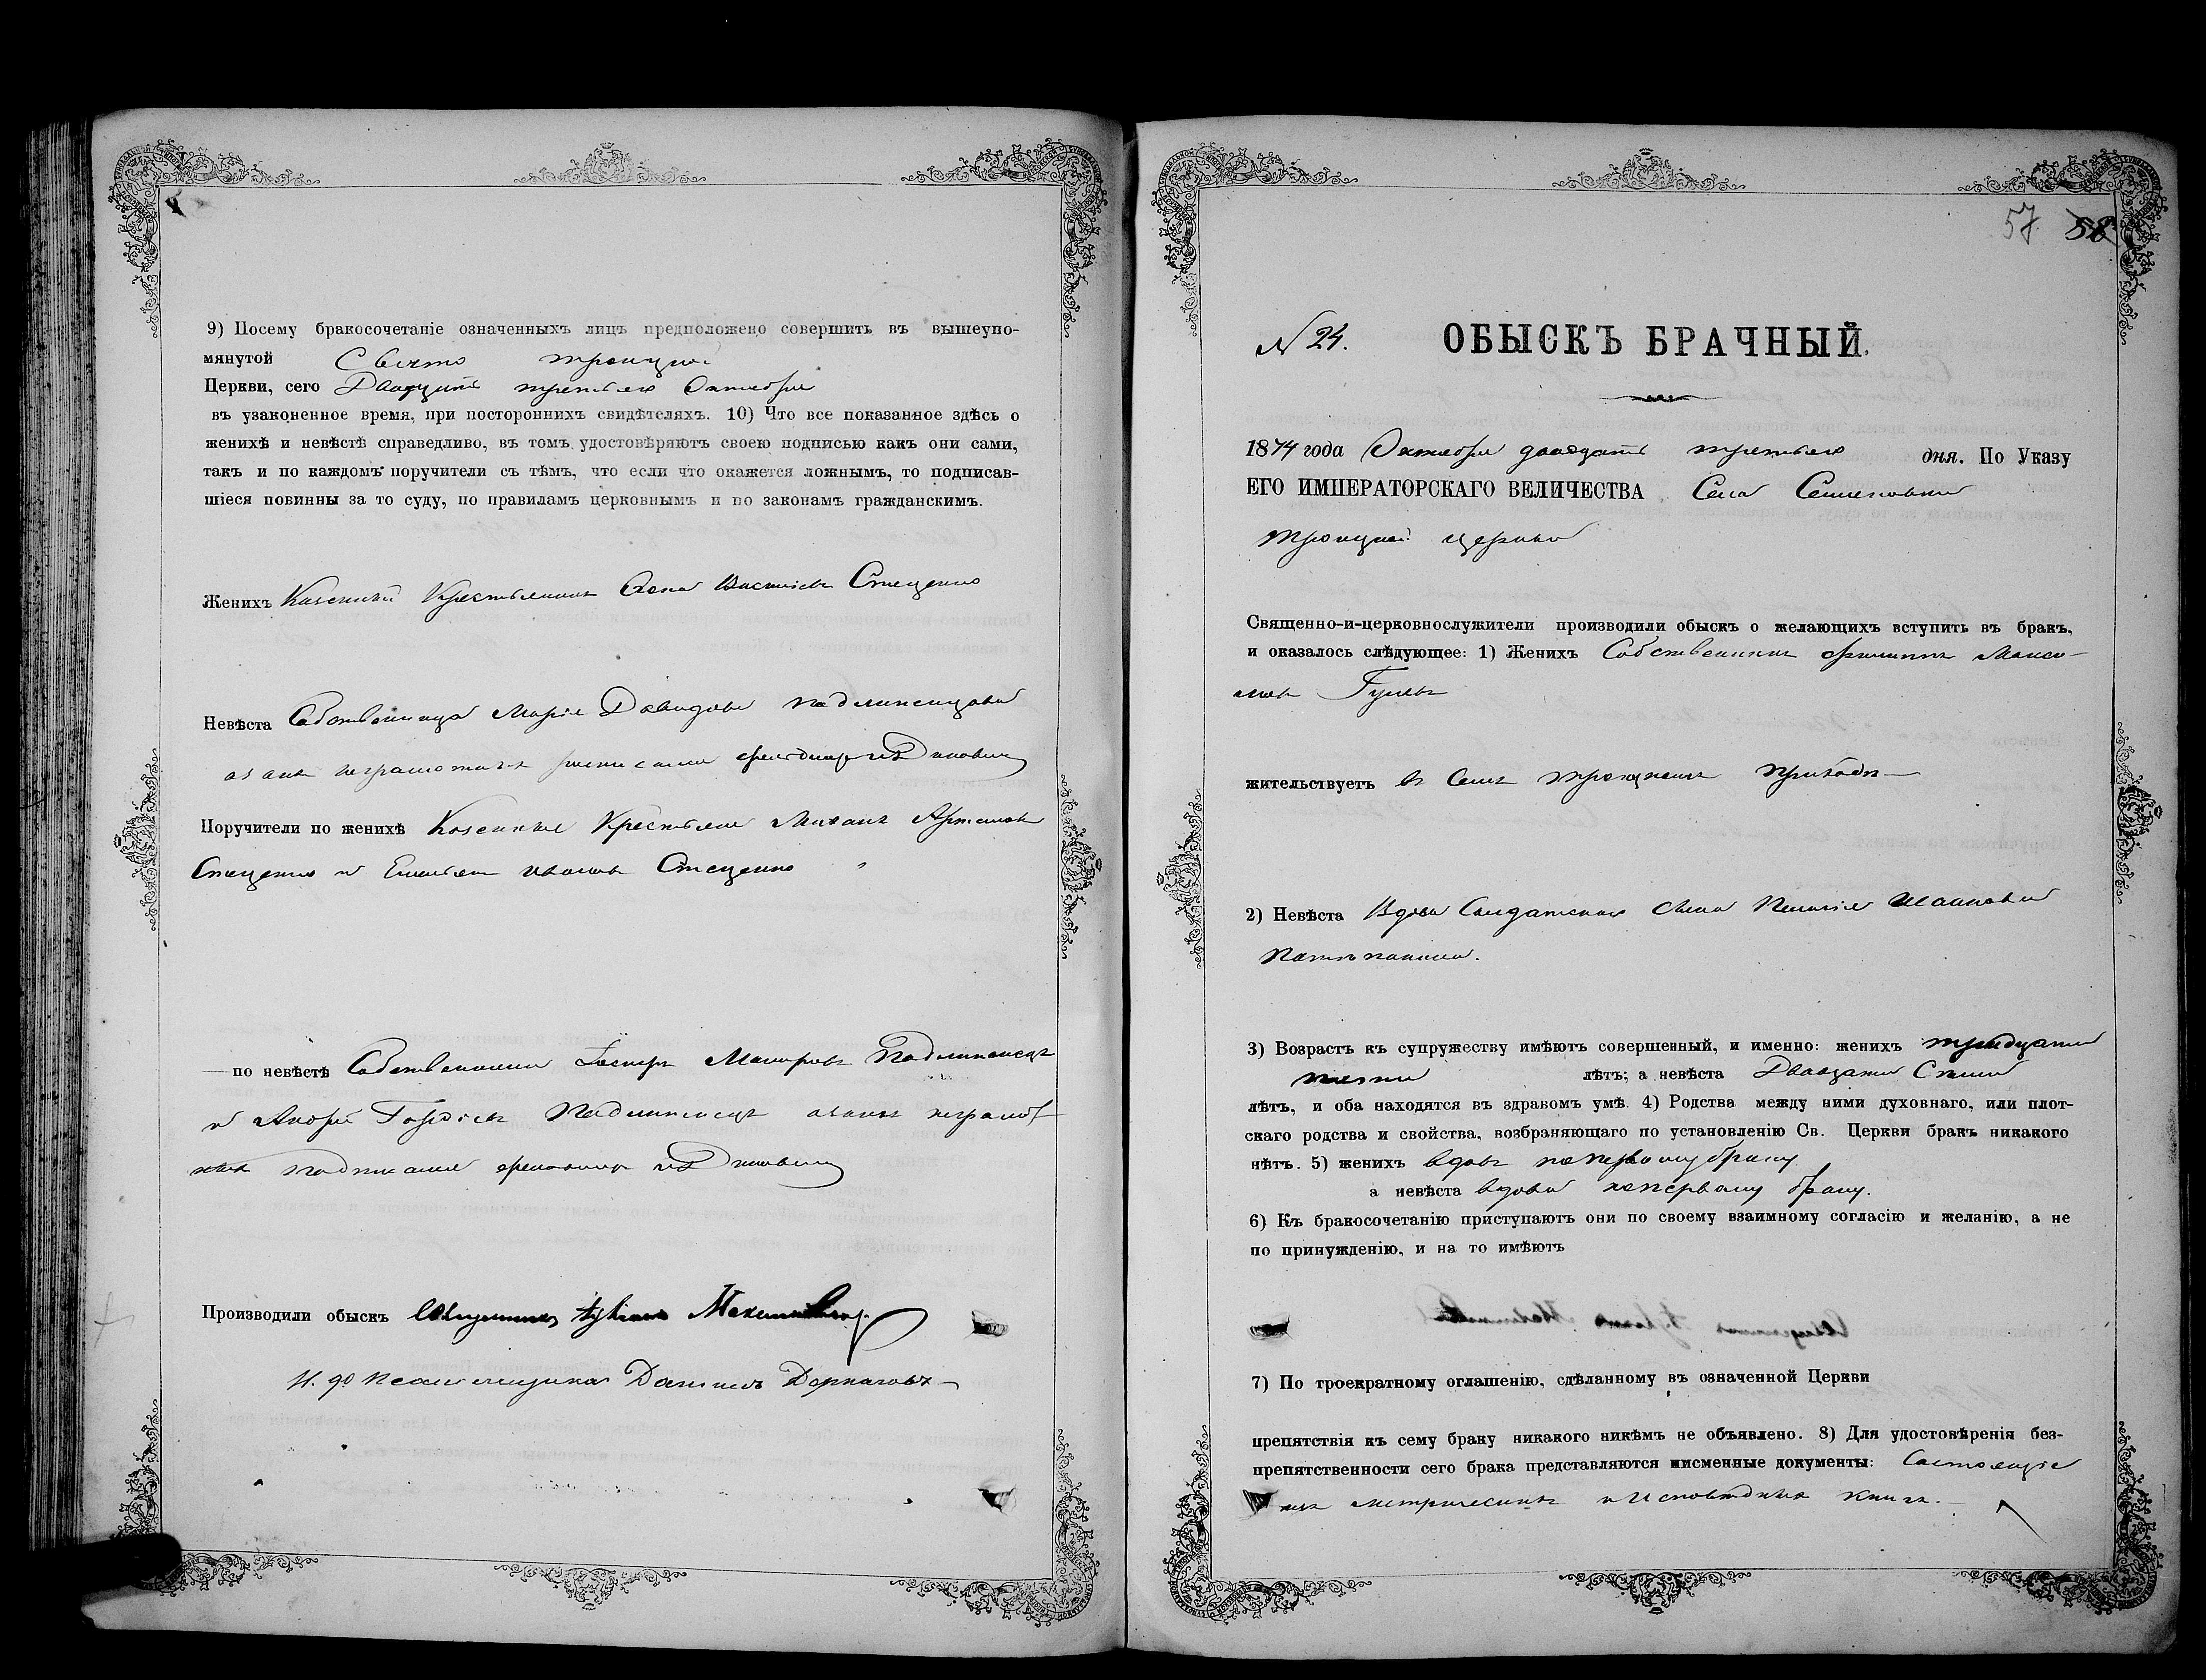 9) Посему бракосочетаніе означенныхъ лицъ предположено совершить въ вышеупо-
мянутой Свято Троицкой
Церкви, сего Двадцать третьяго Октября
въ узаконенное время, при постороннихъ свидѣтеляхъ. 10) Что все показанное здѣсь о
женихѣ и невѣстѣ справедливо, въ томъ удостовѣряютъ своею подписью какъ они сами,
такъ и по каждомъ поручители съ тѣмъ, что если что окажется ложнымъ, то подписав-
шіеся повинны за то суду, по правиламъ церковнымъ и по законамъ гражданскимъ.
Женихъ Козенный Крестьянинъ Стеценко
Невѣста Собственница Марія Давидова
неграмотныхъ
Поручители по женихѣ Козенные Крестьяне Артемовъ
Стеценко и Емельян Ивановъ Стеценко
— по невѣстѣ Собственники
и Андрей Гордіевъ неграмот-
ныхъ
Производили обыскъ Священникъ
И. до Псаломщика Даніилъ
57 58
N 24. ОБЫСКЪ БРАЧНЫЙ.
1874 года Октября двадцать третьяго дня. По Указу
ЕГО ИМПЕРАТОРСКАГО ВЕЛИЧЕСТВА Села Семеновки
Троицкой церкви
Священно-и-церковнослужители производили обыскъ о желающихъ вступить въ бракъ,
и оказалось слѣдующее: 1) Женихъ Собственникъ Филиппъ Макси-
мовъ Гулевъ
жительствуетъ въ Семъ Троицкомъ приходѣ —
2) Невѣста Вдова Солдатская Жена Пелагія Иванова
3) Возрастъ къ супружеству имѣютъ совершенный, и именно: женихъ тридцати
пяти лѣтъ; а невѣста Двадцати Семи
лѣтъ, и оба находятся въ здравомъ умѣ. 4) Родства между ними духовнаго, или плот-
скаго родства и свойства, возбраняющаго по установленію Св. Церкви бракъ никакого
нѣтъ. 5) женихъ вдовъ поперв­ому браку
а невѣста вдова поперв­ому браку.
6) Къ бракосочетанію приступаютъ они по своему взаимному согласію и желанію, а не
по принужденію, и на то имѣютъ
7) По троекратному оглашенію, сдѣланному въ означенной Церкви
препятствія къ сему браку никакого никѣмъ не объявлено. 8) Для удостовѣренія без-
препятственности сего брака представляются письменные документы: Состоящіе
метрическихъ и Исповѣдныхъ книгъ.